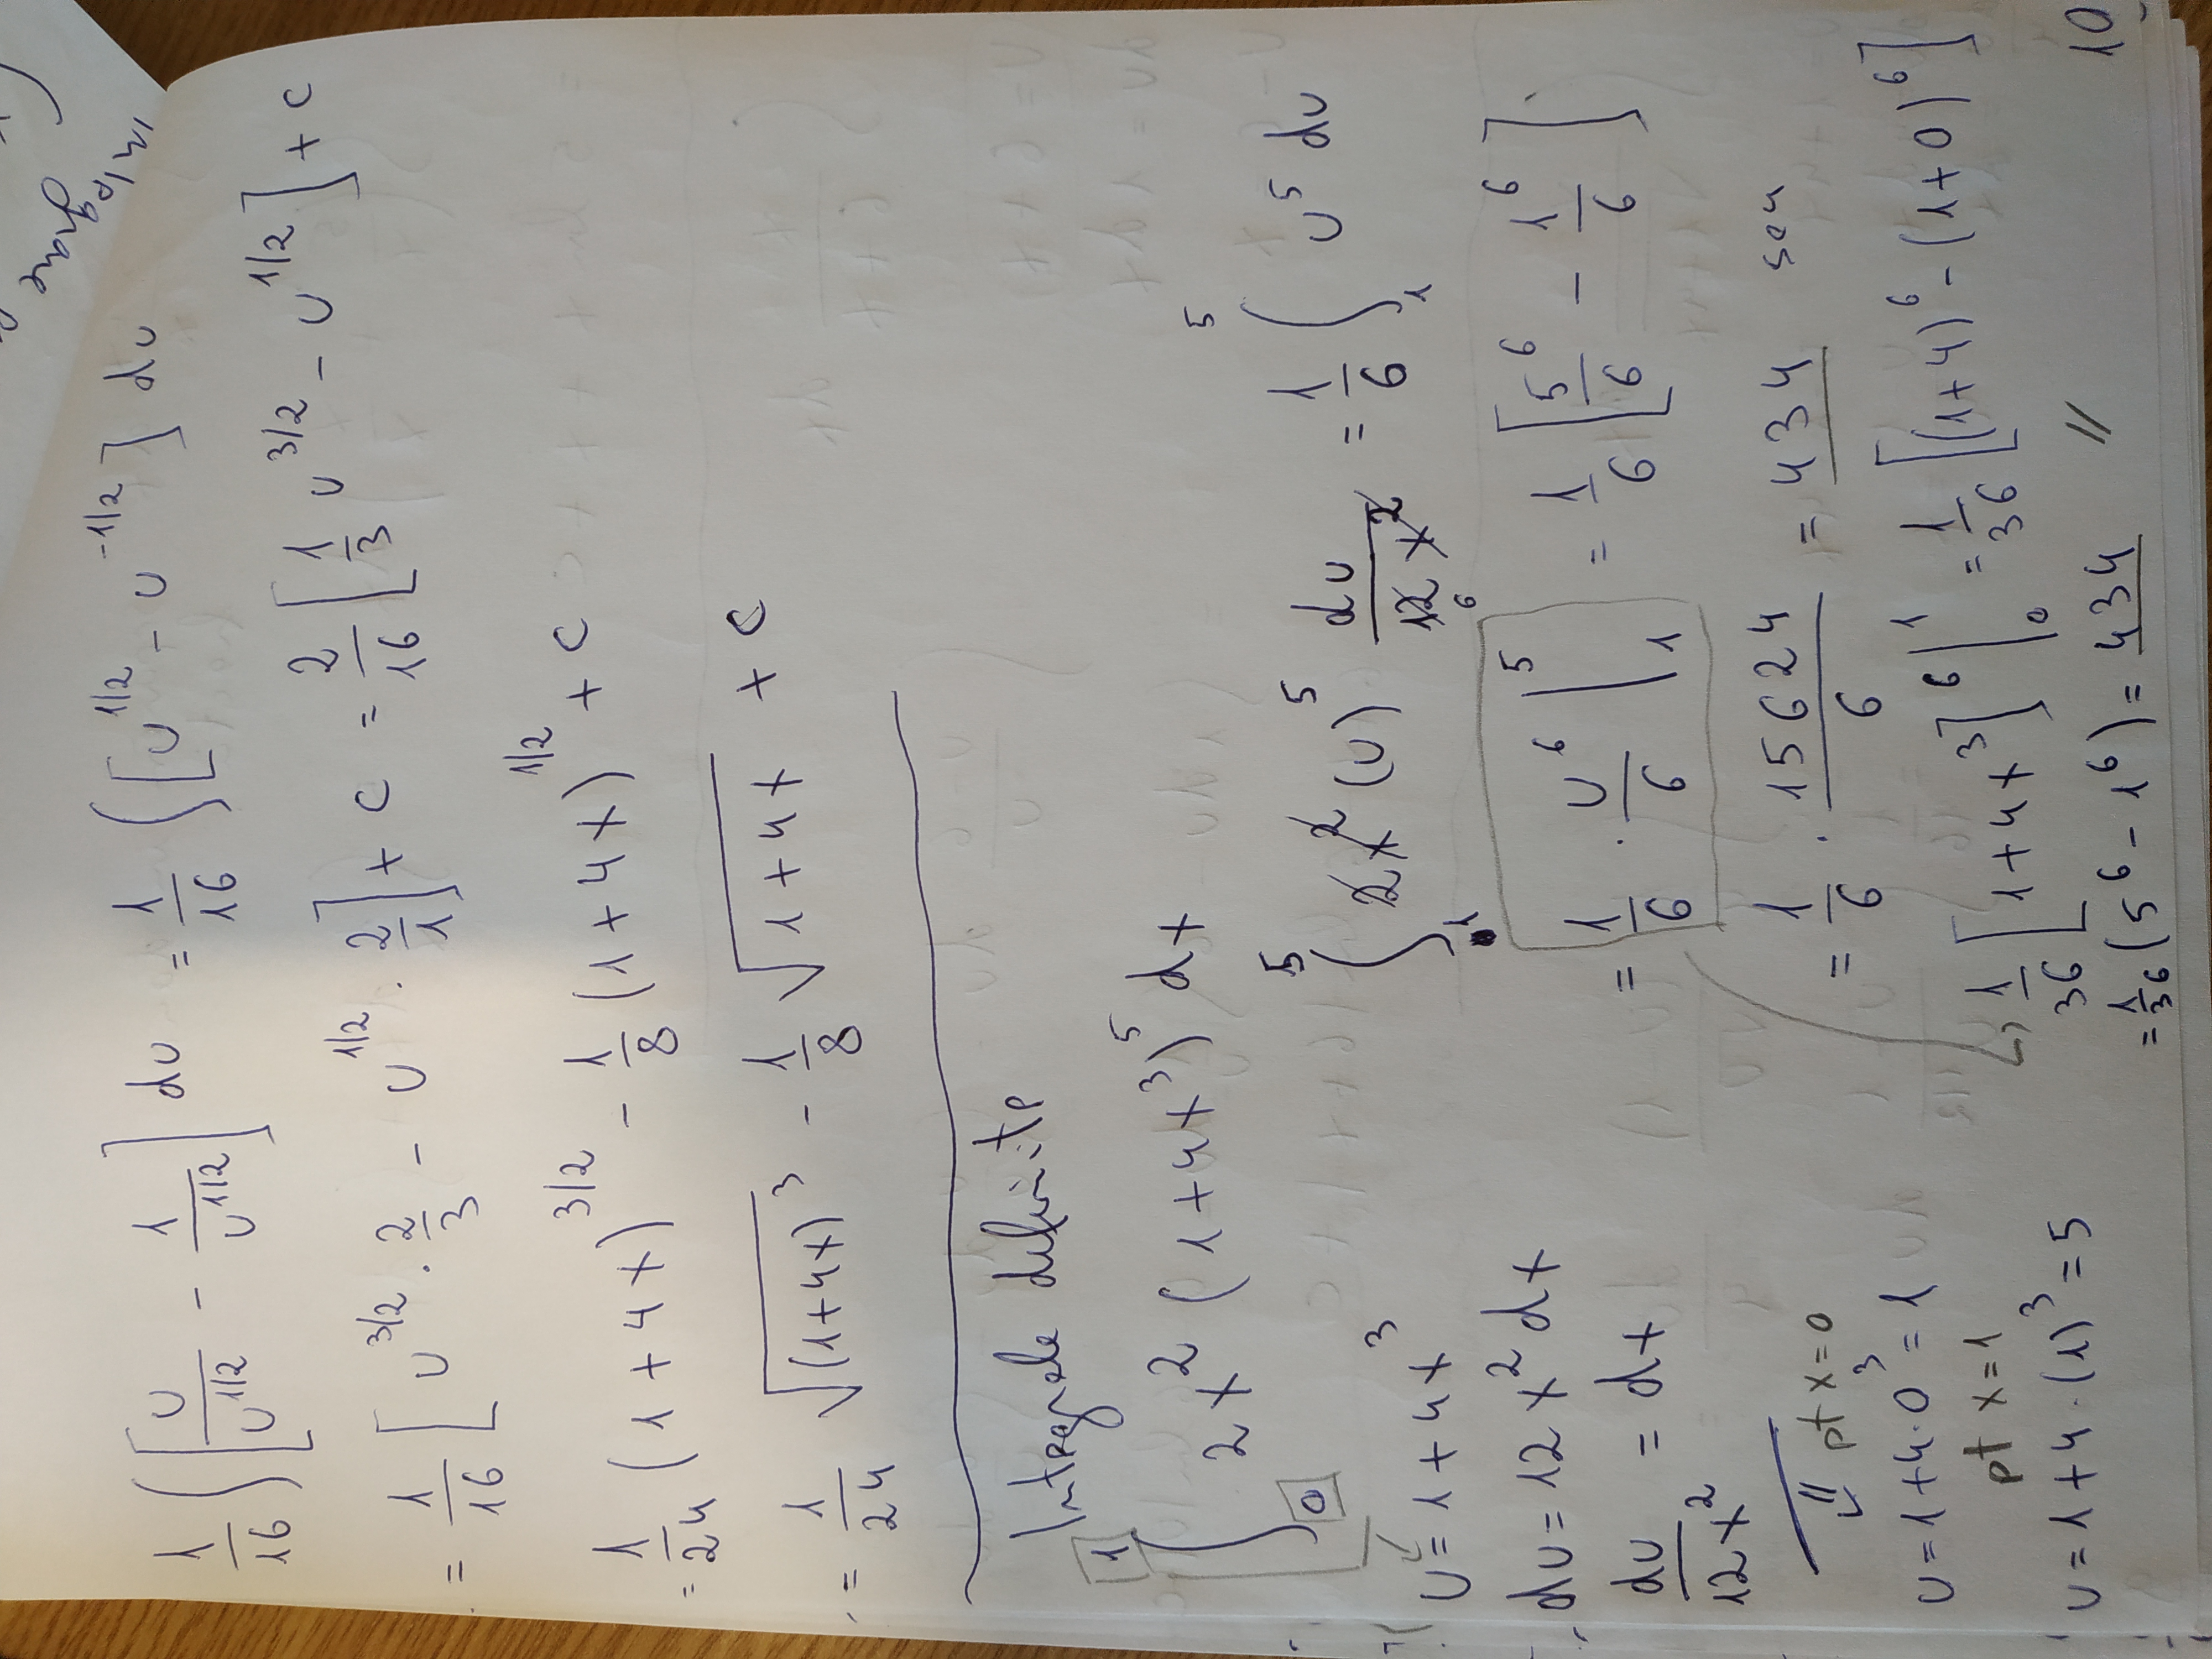 integrare
1/16 ∫ [u/u^1/2 - 1/u^1/2] du = 1/16 ∫ [u^1/2 - u^-1/2] du
= 1/16 [u^3/2 · 2/3 - u^1/2 · 2/1] + C = 2/16 [1/3 u^3/2 - u^1/2] + C
= 1/24 (1+4x)^3/2 - 1/8 (1+4x)^1/2 + C
= 1/24 √(1+4x)^3 - 1/8 √1+4x + C
Integrale definite
∫_0^1 2x^2 (1+4x^3)^5 dx
u = 1+4x^3
du = 12x^2 dx
du/12x^2 = dx
pt x=0
u = 1+4·0^3 = 1
pt x=1
u = 1+4·(1)^3 = 5
∫_1^5 2x^2 (u)^5 du/12x^2 = 1/6 ∫_1^5 u^5 du
6
= 1/6 · u^6/6 |_1^5 = 1/6 [5^6/6 - 1^6/6]
= 1/6 · 15624/6 = 434 sau
1/36 [1+4x^3]^6 |_0^1 = 1/36 [(1+4)^6 - (1+0)^6]
= 1/36 (5^6 - 1^6) = 434 //
10